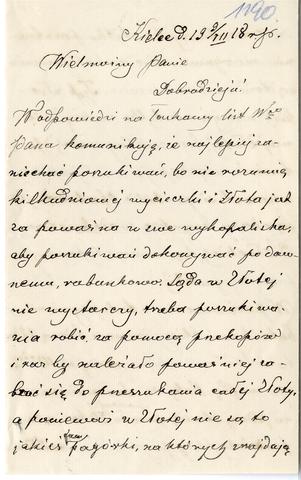 1190.
Kielce d. 19 9/III 18 r.
Wielmożny Panie
Dobrodzieju!
W odpowiedzi na łaskawy list Wgo
Pana komunikuję, że najlepiej za-
niechać poszukiwań, bo nie rozumię
kilkudniowej wycieczki i Złota jest
za poważna w swe wykopaliska,
aby poszukiwań dokonywać po daw-
nemu, rabunkowo. Sąda w Złotej
nie wystarczy, trzeba poszukiwa-
nia robić za pomocą przekopów
i raz by należało poważniej za-
brać się do przeszukania całej Złoty,
a ponieważ w Złotej nie są to
jakieś pagórki, na których znajdują